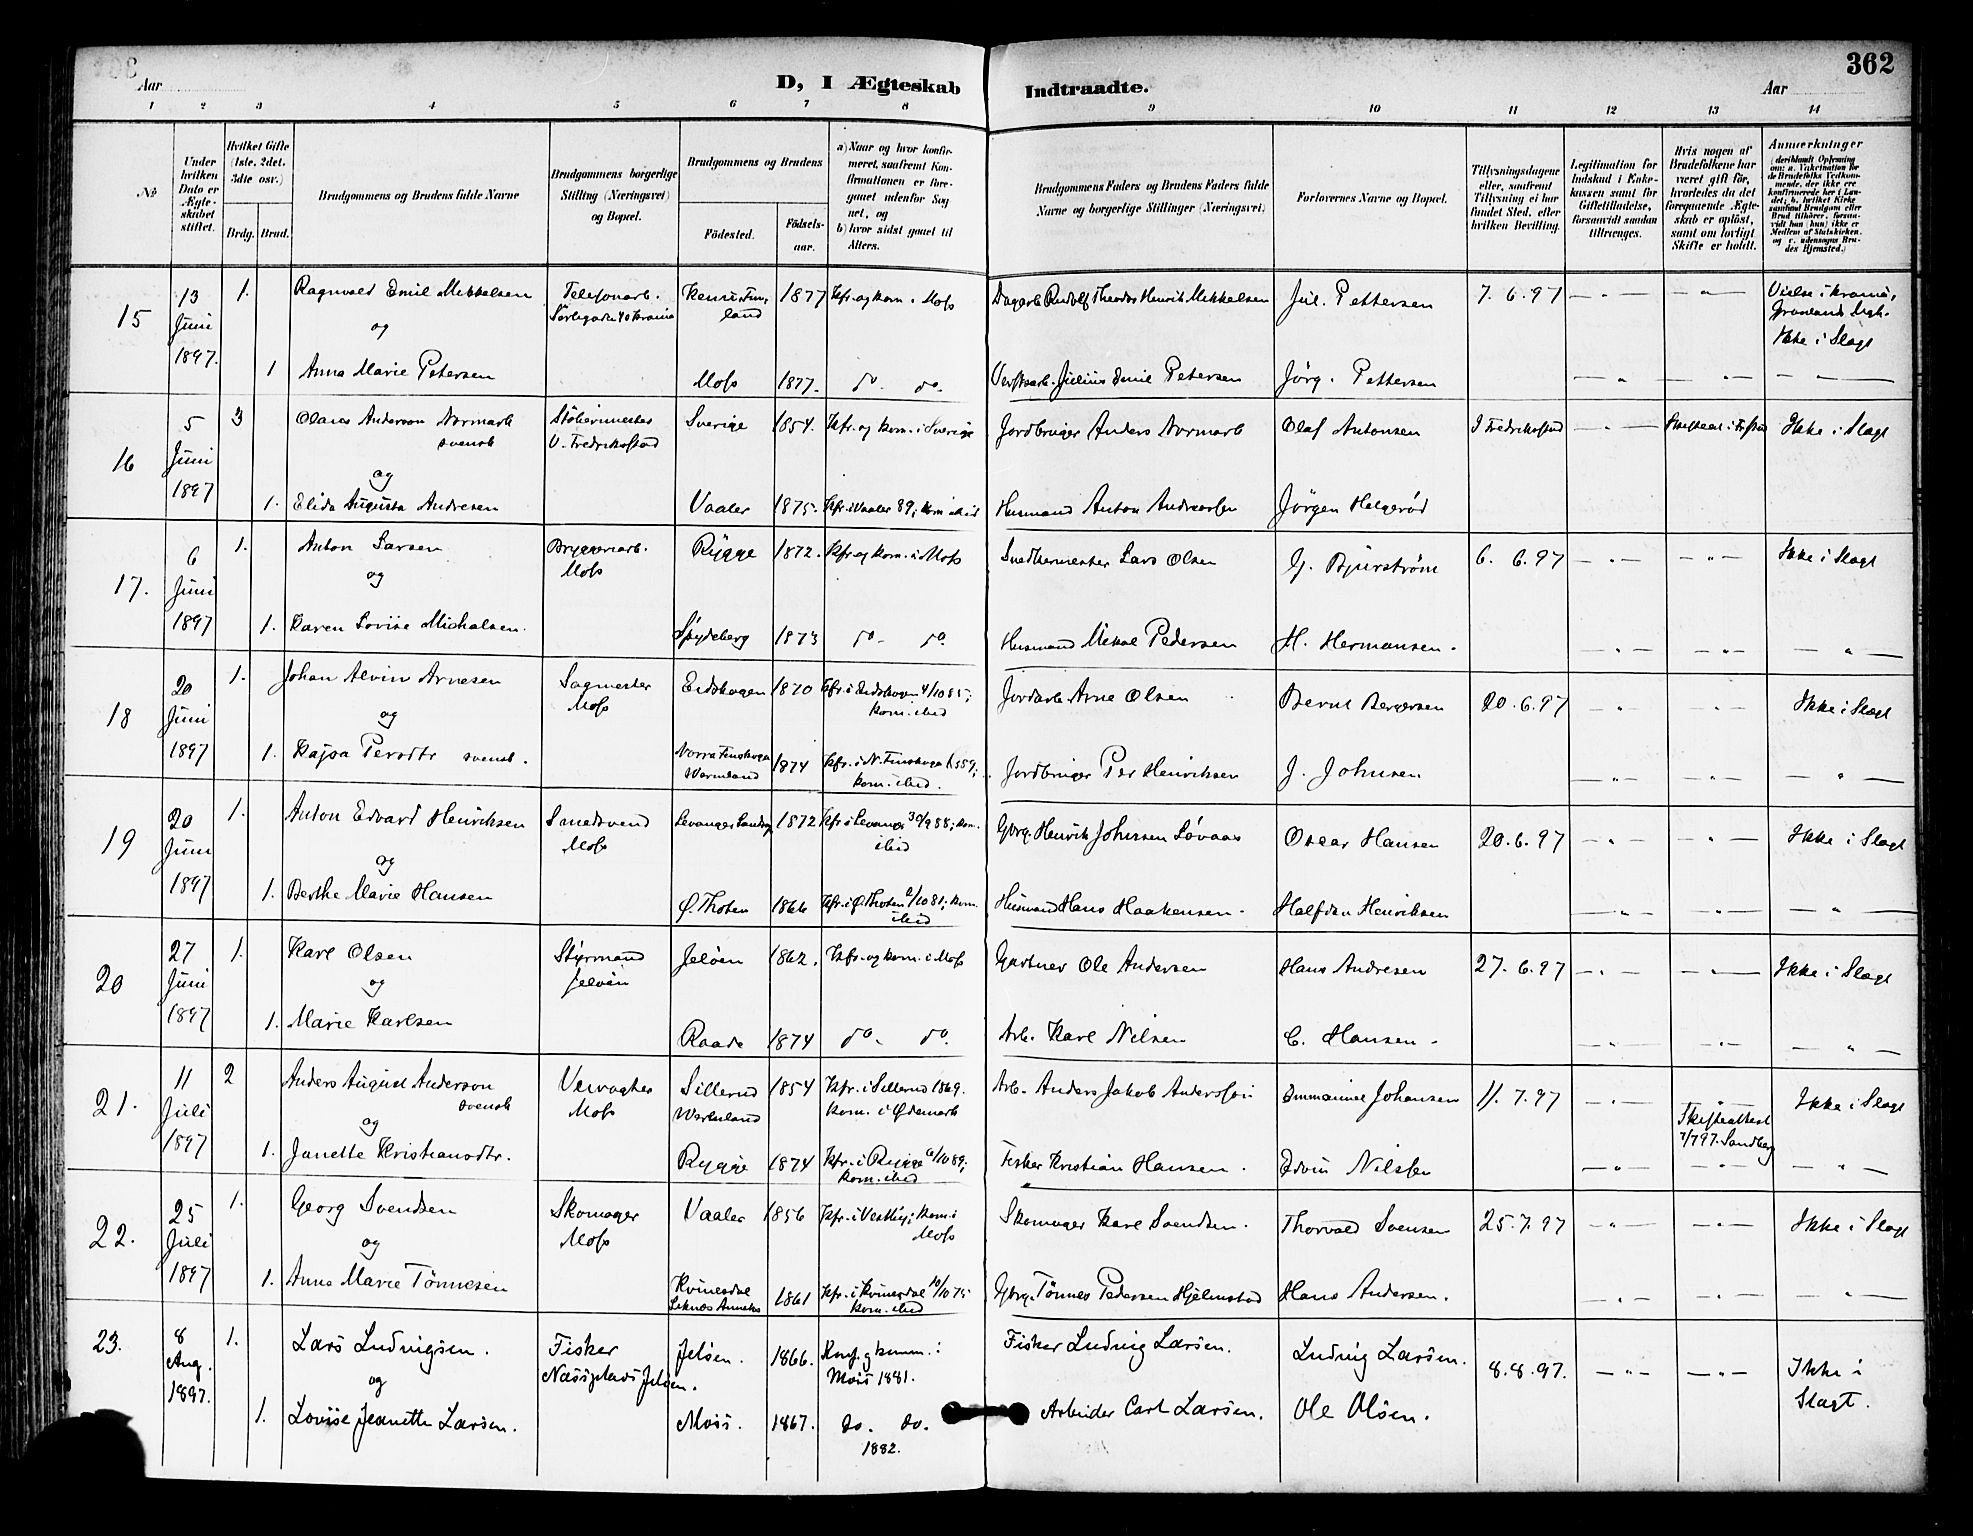 362
Aar
D, I Ægteskab Indtraadte.
Aar
1 2 3 4 5 6 7 8 9 10 11 12 13 14
No
Under hvilken Dato er Ægteskabet stiftet.
Hvilket Gifte (1ste, 2det, 3die osv.)
Brdg. Brud.
Brudgommens og Brudens fulde Navne
Brudgommens borgerlige Stilling (Næringsvei) og Bopæl.
Brudgommens og Brudens
Fødested. Fødselsaar.
a) Naar og hvor konfirmeret, saafremt Konfirmationen er foregaaet udenfor Sognet, og
b) hvor sidst gaaet til Alters.
Brudgommens Faders og Brudens Faders fulde Navne og borgerlige Stillinger (Næringsvei)
Forlovernes Navne og Bopæl.
Tillysningsdagene eller, saafremt Tillysning ei har fundet Sted, efter hvilken Bevilling.
Legitimation for Indskud i Enkekassen samt for Giftetilladelse, forsaavidt saadan tiltrænges.
Hvis nogen af Brudefolkene har været gift før, hvorledes da det foregaaende Ægteskab er opløst, samt om lovligt Skifte er holdt.
Anmærkninger
15 13 Juni 1897. 1. Ragnvald Emil Mikkelsen Telefonarb. 1877 Kfr. og kom. i Moss Dagarb. Rudolf Theodor Henrik Mikkelsen Jul. Pettersen 7.6.97 — " — — " —
Ikke i Slægt
og
1 Anna Marie Petersen Moss 1877. do. do. Julius Emil Petersen Jörg. Pettersen — " — — " — — " —
16 5 Juni 1897 3 Anderson Normark svensk V. Fredrikstad Sverige 1854. Kfr. og kom. i Sverige Jordbruger Anders Normark Olaf Antonsen I Fredrikstad — " — Ikke i Slægt
og
1. Elida Augusta Andresen Vaaler 1875. Kfr. i Vaaler 89; kom. ibid Husmand Anton Jörgen Helgerød
17. 6 Juni 1897 1. Anton Larsen Bryggeriarb. Moss Rygge 1872. Kfr. og kom. i Moss Snedkermester Lars Olsen G. Bjurström 6. 6.97 — " — — " — Ikke i Slægt
og
1. Karen Lovise Michalsen. Spydeberg 1873 do. do. Husmand Mikal Pedersen H. Hermansen. — " — — " — — " —
18 20 Juni 1897 1. Johan Alvin Arnesen Sagmester Moss Eidskogen 1870 Kfr. i Eidskogen 4/10 85; kom. ibid Jordarb. Arne Olsen Bernt Bergersen 20.6.97 — " — — " — Ikke i Slægt
og
1. Kajsa Persdtr svensk. Norra Finskoga Wermland 1874 Kfr. i N. Finskoga kom. ibid. Jordbruger Per Henriksen J. Johnsen — " — — " — — " —
19 20 Juni 1897 1. Anton Edvard Henriksen Smedsvend Moss 1872 Kfr. i Levanger 30/9 88; kom. ibid Gbrg. Henrik Johnsen Løvaas Oscar Hansen 20.6.97 — " — — " — Ikke i Slægt
og
1. Berthe Marie Hansen Ø. Thoten 1866 Kfr. i Ø. Thoten 2/10 81; kom. ibid Husmand Hans Haakensen. Halfdan Henriksen — " — — " — — " —
20 27 Juni 1897 1. Karl Olsen Styrmand Jeløen Jeløen 1862. Kfr. og kom. i Moss Gartner Ole Andersen Hans Andresen 27.6.97 — " — — " — Ikke i Slægt
og
1. Marie Karlsen Raade 1874 do. do. Arb. Karl Nilsen C. Hansen. — " — — " — — " —
21. 11 Juli 1897 2 Anders August Anderson svensk Moss Sillerud Wermland 1854 Kfr. i Sillerud 1869. kom. i Ødemark Arb. Anders Jakob Andersson Emmanuel Johansen 11.7.97 — " — Skifteattest 7/7 97. Sandberg Ikke i Slægt
og
1. Janette Kristiansdtr. Rygge 1874 Kfr. i Rygge 6/10 89; kom. ibid Fisker Kristian Hansen. Edvin Nilssen — " — — " — — " —
22. 25 Juli 1897 1. Georg Svendsen Skomager Moss Vaaler 1856 Kfr. i Vestby; kom. i Moss Skomager Karl Svendsen. Thorvald Svensen 25.7.97 — " — — " — Ikke i Slægt
og
1. Anne Marie Tönnesen Kvinesdal 1861 Kfr. i Kvinesdal 10/10 75 kom. ibid Gbrg. Tönnes Pedersen Hjelmstad Hans Andersen. — " — — " — — " —
23. 8 Aug. 1897. 1. Lars Ludvigsen. Fisker Næssplads Jeløen. Jeløen. 1866. Konf. og komm. i Moss 1881. Fisker Ludvig Larsen. Ludvig Larsen. 8.8.97. — " — — " — Ikke i Slægt.
og
1. Lovise Jeanette Larsen. Moss. 1867. do. do. 1882. Arbeider Carl Larsen. Ole Olsen.